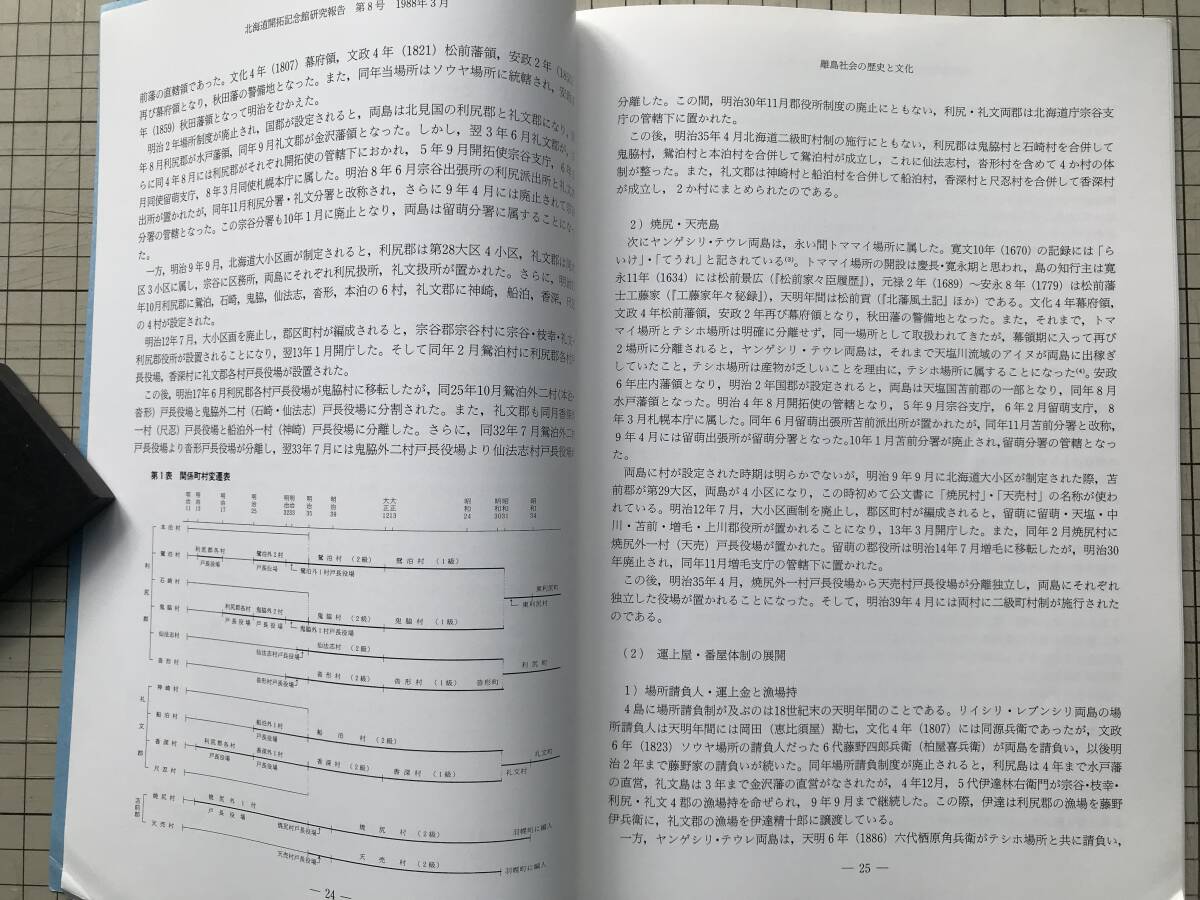 北海道開拓記念館研究報告 第8号 1988年3月
前藩の直轄領であった。文化4年(1807)幕府領,文政4年(1821)松前藩領,安政2年
再び幕府領となり,秋田藩の警備地となった。また,同年当場所はソウヤ場所に統轄され,
年(1859)秋田藩領となって明治をむかえた。
明治2年場所制度が廃止され,国郡が設定されると,両島は北見国の利尻郡と礼文郡になり,
年8月利尻郡が水戸藩領,同年9月礼文郡が金沢藩領となった。しかし,翌3年6月礼文郡が,
らに同4年8月には利尻郡がそれぞれ開拓使の管轄下におかれ,5年9月開拓使宗谷支庁,6年
月同使留萌支庁,8年3月同使札幌本庁に属した。明治8年6月宗谷出張所の利尻派出所と礼文
出所が置かれたが,同年11月利尻分署・礼文分署と改称され,さらに9年4月には廃止されて宗
分署の管轄となった。この宗谷分署も10年1月に廃止となり,両島は留萌分署に属することにな
た。
一方,明治9年9月,北海道大小区画が制定されると,利尻郡は第28大区4小区,礼文郡は
区3小区に属し,宗谷に区務所,両島にそれぞれ利尻扱所,礼文扱所が置かれた。さらに,明治
年10月利尻郡に鴛泊,石崎,鬼脇,仙法志,沓形,本泊の6村,礼文郡に神崎,船泊,香深,尺
の4村が設定された。
明治12年7月,大小区画を廃止し,郡区町村が編成されると,宗谷郡宗谷村に宗谷・枝幸・礼文
利尻郡役所が設置されることになり,翌13年1月開庁した。そして同年2月鴛泊村に利尻郡各村
長役場,香深村に礼文郡各村戸長役場が設置された。
この後,明治17年6月利尻郡各村戸長役場が鬼脇村に移転したが,同25年10月鴛泊外二村(本泊・
沓形)戸長役場と鬼脇外二村(石崎・仙法志)戸長役場に分割された。また,礼文郡も同月香深
一村(尺忍)戸長役場と船泊外一村(神崎)戸長役場に分離した。さらに,同32年7月鴛泊外二
戸長役場より沓形村戸長役場が分離し,翌33年7月には鬼脇外二村戸長役場より仙法志村戸長役場
第1表 関係町村変遷表
明治11
明治13
明治17
明治25
明治32
明治33
明治35
明治39
大正12
大正13
昭和24
昭和30
昭和31
昭和34
利尻郡
本泊村
鴛泊村 利尻郡各村戸長役場 鴛泊外2村戸長役場 鴛泊外1村戸長役場 鴛泊村(2級) 鴛泊村(1級)
石崎村
東利尻町
東利尻村
鬼脇村 利尻郡各村戸長役場 鬼脇外2村戸長役場 鬼脇外1村戸長役場 鬼脇村(2級) 鬼脇村(1級)
仙法志村 仙法志村戸長役場 仙法志村(2級)
利尻町
沓形村 沓形村戸長役場 沓形村(2級) 沓形村(1級) 沓形町
礼文郡
神崎村
船泊村 船泊外1村戸長役場 船泊村(2級)
礼文町
礼文村
香深村 利尻郡各村戸長役場 香深外1村戸長役場 香深村(2級) 香深村(1級)
尺忍村
苫前郡
焼尻村 焼尻外1村戸長役場 焼尻村戸長役場 焼尻村(2級) 羽幌町に編入
天売村 天売村戸長役場 天売村(2級) 羽幌町に編入
— 24 —
離島社会の歴史と文化
分離した。この間,明治30年11月郡役所制度の廃止にともない,利尻・礼文両郡は北海道庁宗谷支
庁の管轄下に置かれた。
この後,明治35年4月北海道二級町村制の施行にともない,利尻郡は鬼脇村と石崎村を合併して
鬼脇村,鴛泊村と本泊村を合併して鴛泊村が成立し,これに仙法志村,沓形村を含めて4か村の体
制が整った。また,礼文郡は神崎村と船泊村を合併して船泊村,香深村と尺忍村を合併して香深村
が成立し,2か村にまとめられたのである。
2)焼尻・天売島
次にヤンゲシリ・テウレ両島は,永い間トママイ場所に属した。寛文10年(1670)の記録には「ら
いけ」・「てうれ」と記されている⁽³⁾。トママイ場所の開設は慶長・寛永期と思われ,島の知行主は寛
永11年(1634)には松前景広(『松前家々臣履歴』),元禄2年(1689)～安永8年(1779)は松前藩
士工藤家(『工藤家年々秘録』),天明年間は松前貢(『北藩風土記』ほか)である。文化4年幕府領,
文政4年松前藩領,安政2年再び幕府領となり,秋田藩の警備地となった。また,それまで,トマ
マイ場所とテシホ場所は明確に分離せず,同一場所として取扱われてきたが,幕領期に入って再び
2場所に分離されると,ヤンゲシリ・テウレ両島は,それまで天塩川流域のアイヌが両島に出稼ぎ
していたこと,テシホ場所は産物が乏しいことを理由に,テシホ場所に属することになった⁽⁴⁾。安政
6年庄内藩領となり,明治2年国郡が設定されると,両島は天塩国苫前郡の一部となり,同年8月
水戸藩領となった。明治4年8月開拓使の管轄となり,5年9月宗谷支庁,6年2月留萌支庁,8
年3月札幌本庁に属した。同年6月留萌出張所苫前派出所が置かれたが,同年11月苫前分署と改称,
9年4月には留萌出張所が留萌分署となった。10年1月苫前分署が廃止され,留萌分署の管轄となっ
た。
両島に村が設定された時期は明らかでないが,明治9年9月に北海道大小区が制定された際,苫
前郡が第29大区,両島が4小区になり,この時初めて公文書に「焼尻村」・「天売村」の名称が使わ
れている。明治12年7月,大小区画制を廃止し,郡区町村が編成されると,留萌に留萌・天塩・中
川・苫前・増毛・上川郡役所が置かれることになり,13年3月開庁した。また,同年2月焼尻村に
焼尻外一村(天売)戸長役場が置かれた。留萌の郡役所は明治14年7月増毛に移転したが,明治30
年廃止され,同年11月増毛支庁の管轄下に置かれた。
この後,明治35年4月,焼尻外一村戸長役場から天売村戸長役場が分離独立し,両島にそれぞれ
独立した役場が置かれることになった。そして,明治39年4月には両村に二級町村制が施行された
のである。
(2) 運上屋・番屋体制の展開
1)場所請負人・運上金と漁場持
4島に場所請負制が及ぶのは18世紀末の天明年間のことである。リイシリ・レブンシリ両島の場
所請負人は天明年間には岡田(恵比須屋)勘七,文化4年(1807)には同源兵衛であったが,文政
6年(1823)ソウヤ場所の請負人だった6代藤野四郎兵衛(柏屋喜兵衛)が両島を請負い,以後明
治2年まで藤野家の請負いが続いた。同年場所請負制度が廃止されると,利尻島は4年まで水戸藩
の直営,礼文島は3年まで金沢藩の直営がなされたが,4年12月,5代伊達林右衛門が宗谷・枝幸・
利尻・礼文4郡の漁場持を命ぜられ,9年9月まで継続した。この際,伊達は利尻郡の漁場を藤野
伊兵衛に,礼文郡の漁場を伊達精十郎に譲渡している。
一方,ヤンゲシリ・テウレ両島は,天明6年(1886)六代栖原角兵衛がテシホ場所と共に請負い,
— 25 —